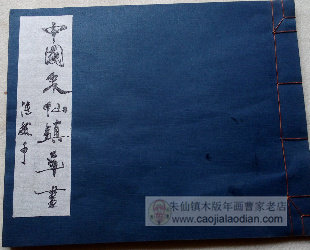 中國朱仙鎮年畫
朱仙镇木版年画曹家老店
www.caojialaodian.com